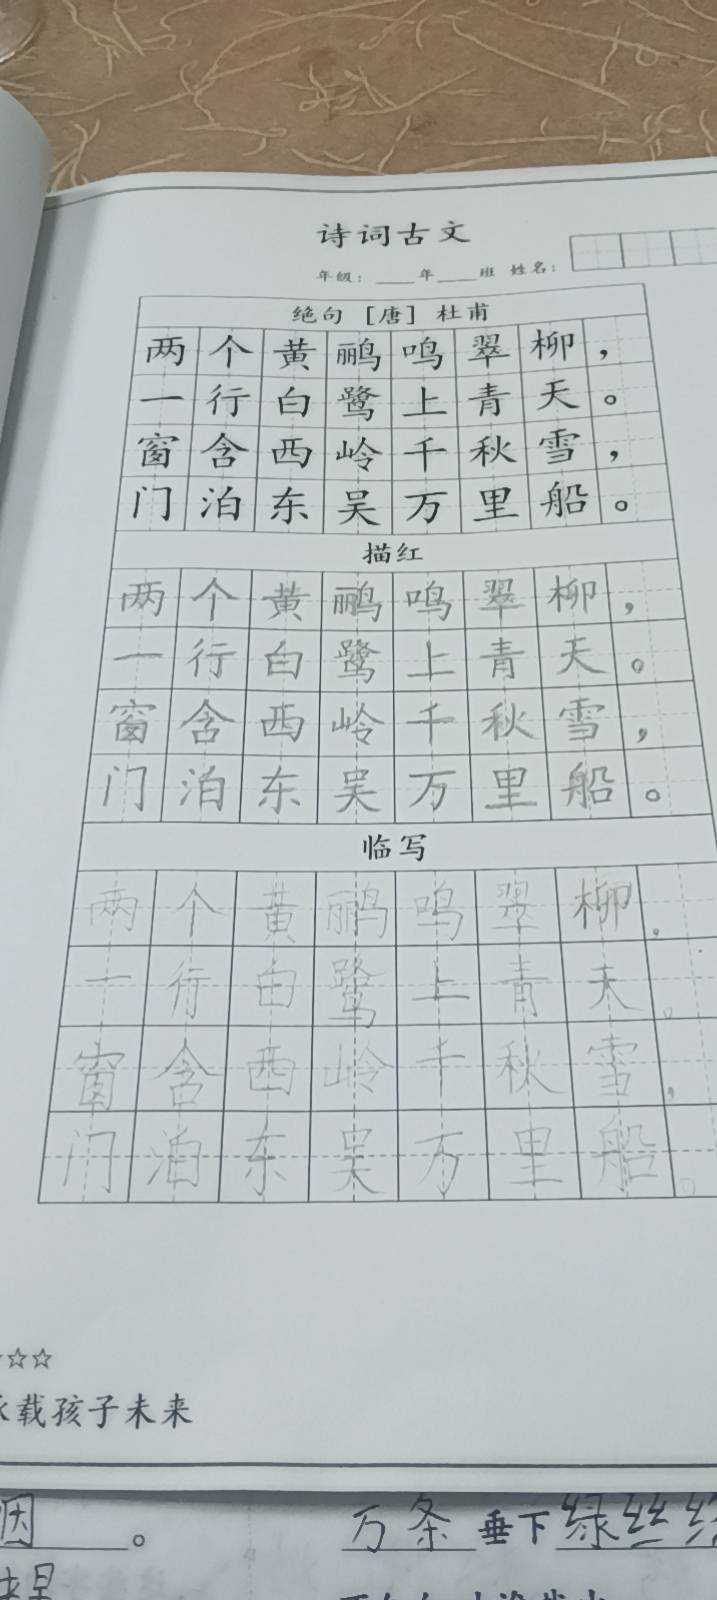 诗词古文
年级：____年____班 姓名：
绝句 [唐] 杜甫
两个黄鹂鸣翠柳，
一行白鹭上青天。
窗含西岭千秋雪，
门泊东吴万里船。
描红
两个黄鹂鸣翠柳，
一行白鹭上青天。
窗含西岭千秋雪，
门泊东吴万里船。
临写
两个黄鹂鸣翠柳，
一行白鹭上青天。
窗含西岭千秋雪，
门泊东吴万里船。
☆☆
载孩子未来
。 万条垂下绿丝